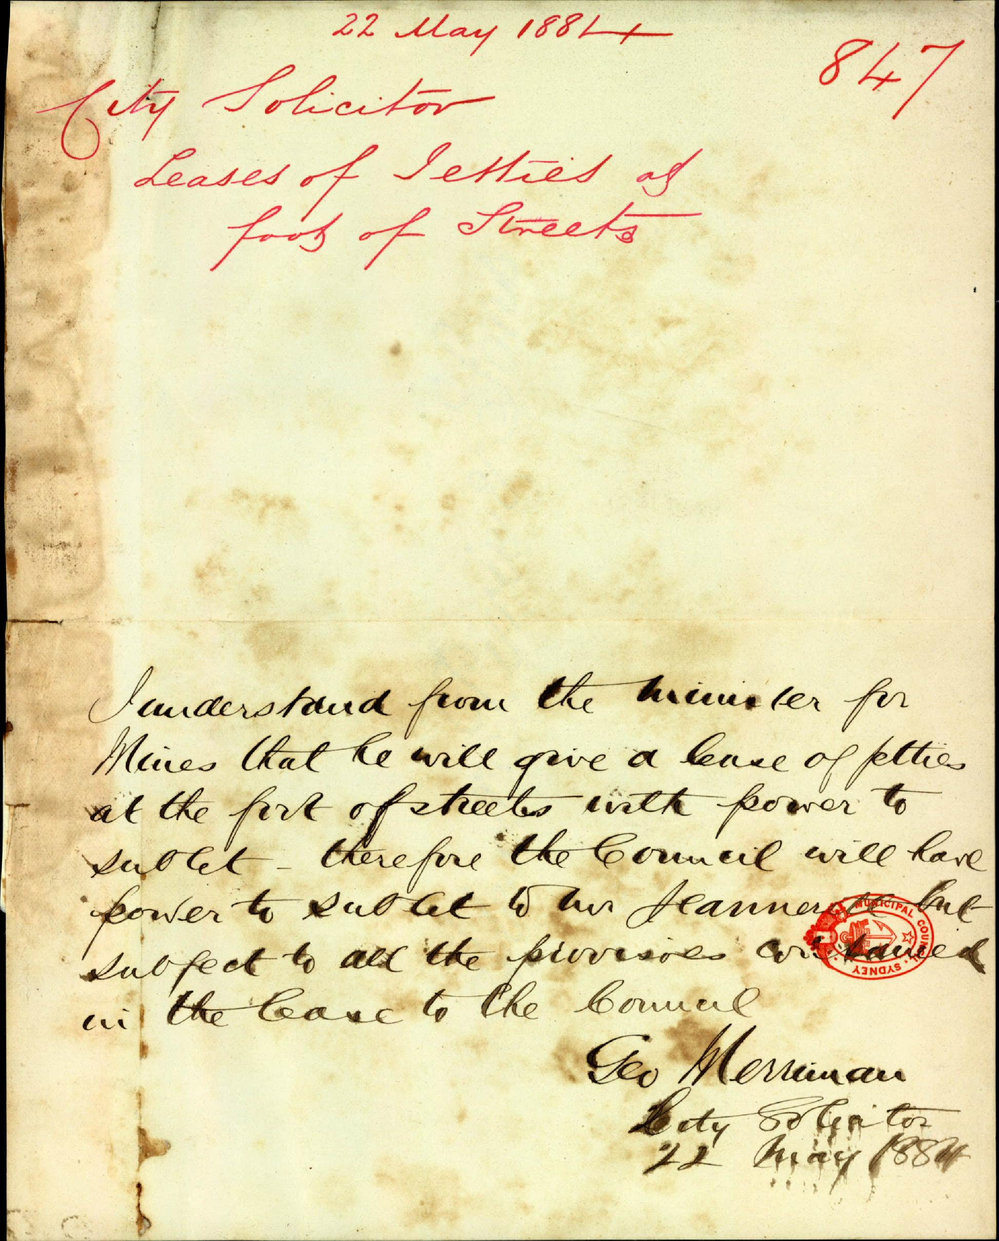 22 May 1884
847
City Solicitor
Leases of Jetties at
foot of Streets
I understand from the Minister for
Mines that he will give a lease of jetties
at the foot of streets with power to
sublet - therefore the Council will have
power to sublet to Mr Jeanneret but
subject to all the provisoes contained
in the lease to the Council
Geo Merriman
City Solicitor
22 May 1884
MUNICIPAL COUNCIL SYDNEY